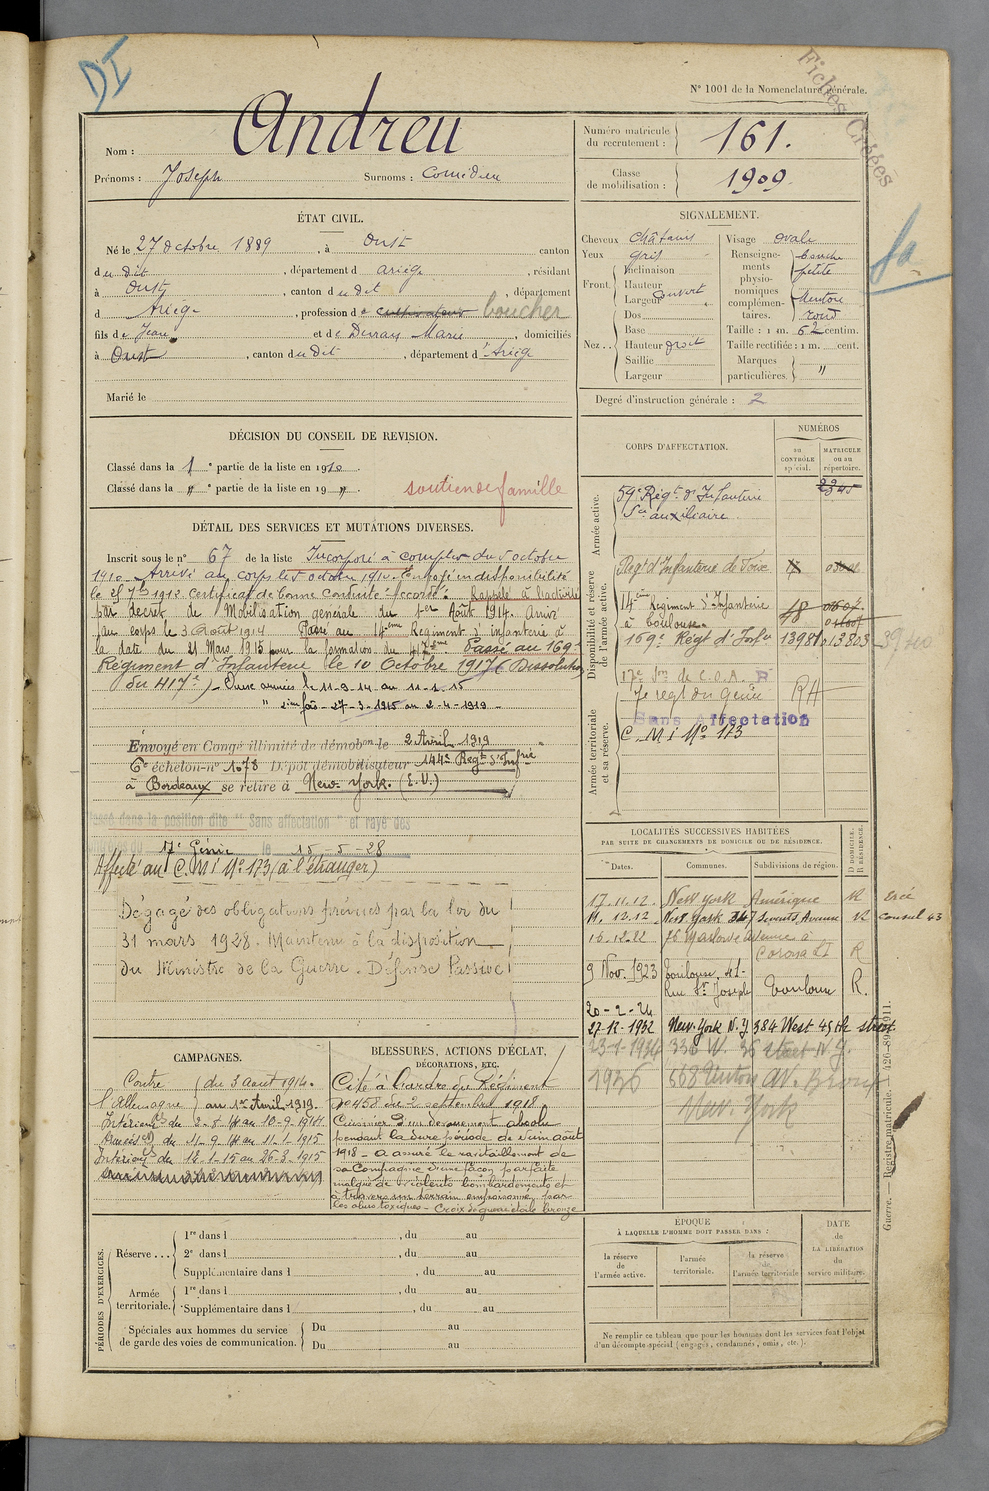 DI
Fiches Créées
N° 1001 de la Nomenclature générale.
Nom : Andreu
Prénoms : Joseph Surnoms : Comédien
Numéro matricule du recrutement : 161.
Classe de mobilisation : 1909.
ÉTAT CIVIL.
Né le 27 Octobre 1889, à Oust canton
du dit, département d Ariège, résidant
à Oust, canton du dit, département
d Ariège, profession de cultivateur boucher
fils de Jean et de Durran Marie, domiciliés
à Oust, canton du dit, département d'Ariège
Marié le
SIGNALEMENT.
Cheveux châtains
Yeux gris
Front. Inclinaison
Hauteur
Largeur ouvert
Nez.. Dos
Base
Hauteur droit
Saillie
Largeur
Visage ovale
Renseignements physionomiques complémentaires. bouche petite
menton rond
Taille : 1 m. 62 centim.
Taille rectifiée : 1 m. cent.
Marques particulières. "
Degré d'instruction générale : 2
DÉCISION DU CONSEIL DE REVISION.
Classé dans la 1e partie de la liste en 1910.
Classé dans la " e partie de la liste en 19 ".
soutien de famille
DÉTAIL DES SERVICES ET MUTATIONS DIVERSES.
Inscrit sous le n° 67 de la liste Incorporé à compter du 5 octobre
1910. Arrivé au corps le 5 octobre 1910. Envoyé en disponibilité
le 25 7bre 1912 Certificat de bonne Conduite : Accordé. Rappelé à l'activité
par décret de Mobilisation générale du 1er Août 1914. Arrivé
au corps le 3 Août 1914 Passé au 14ème Régiment d'infanterie à
la date du 21 Mars 1915 pour la formation du 417ème Passé au 169e
Régiment d'Infanterie le 10 Octobre 1917 (Dissolution
du 417e) - aux armées le 11-9-14 au 11-1-15
" 2ème fois - 27-3-1915 au 2-4-1919 -
Envoyé en Congé illimité de démobon le 2 Avril 1919
6e échelon n° 1078 Dépôt démobilisateur 144e Regt d'Infrie
à Bordeaux se retire à New-York. (E.U.)
Classé dans la position dite "Sans affectation" et rayé des
17e Génie le 15-5-28
Affecté au C.M.I N° 173 (à l'étranger)
Dégagé des obligations prévues par la loi du
31 mars 1928. Maintenu à la disposition
du Ministre de la Guerre. Défense Passive
CORPS D'AFFECTATION.
NUMÉROS
au CONTRÔLE spécial.
MATRICULE ou au répertoire.
Armée active.
59e Régt d'Infanterie 2345
Sce auxiliaire
Disponibilité et réserve de l'armée active.
Régt d'Infanterie de Foix
14ème Régiment d'Infanterie
à Toulouse. 48
169e Régt d'Infie 13981 13803
17e Son de C.O.A.
7e regt du génie RH
Sans Affectation
Armée territoriale et sa réserve.
C.M.I N° 173
LOCALITÉS SUCCESSIVES HABITÉES
PAR SUITE DE CHANGEMENTS DE DOMICILE OU DE RÉSIDENCE.
Dates. Communes. Subdivisions de région. D DOMICILE. R RÉSIDENCE.
17.11.12. New York Amérique R
11.12.12 New York 347 Sevents Avenue R Consul 43
16.12.22 76 Avenue à
Corona LI R
9 Nov. 1923 Toulouse, 41-
Rue St Joseph Toulouse R.
20-2-24
27-12-1932 New York N.Y 384 West 49th street
23-1-1934 336 W. 36 street N.Y.
1936 668 Union AV. Bronx
New-York
CAMPAGNES.
Contre l'Allemagne du 3 aout 1914. au 1er Avril 1919.
Intérieur du 2-8-14 au 10-9-1914
Armées du 11-9-14 au 11-1-1915
Intérieur du 12-1-15 au 26-3-1915
BLESSURES, ACTIONS D'ÉCLAT,
DÉCORATIONS, ETC.
Cité à l'ordre du Régiment
N° 458 du 2 septembre 1918
Cuisinier d'un dévouement absolu
pendant la dure période de Juin août
1918 - a assuré le ravitaillement de
sa Compagnie d'une façon parfaite
malgré de violents bombardements et
à travers un terrain empoisonné par
les obus toxiques - Croix de guerre étoile bronze
PÉRIODES D'EXERCICES.
Réserve... 1re dans l , du au
2e dans l , du au
Supplémentaire dans l , du au
Armée territoriale. 1re dans l , du au
Supplémentaire dans l , du au
Spéciales aux hommes du service de garde des voies de communication. Du au
Du au
ÉPOQUE
À LAQUELLE L'HOMME DOIT PASSER DANS :
la réserve de l'armée active.
l'armée territoriale.
la réserve de l'armée territoriale
DATE de LA LIBÉRATION du service militaire.
Ne remplir ce tableau que pour les hommes dont les services font l'objet
d'un décompte spécial (engagés, condamnés, omis, etc.).
Guerre. — Registre matricule.